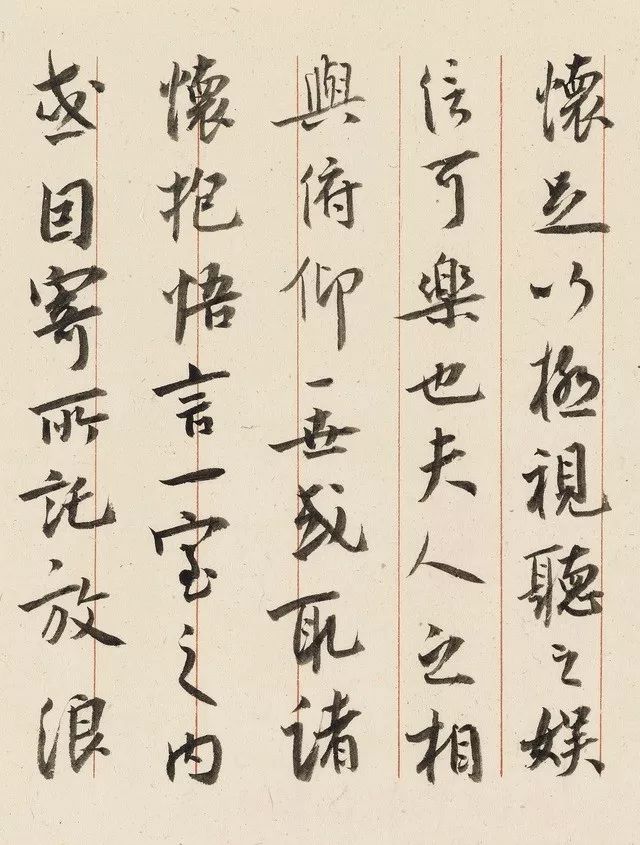 懷足以極視聽之娱
信可樂也夫人之相
與俯仰一世或取諸
懷抱悟言一室之內
或因寄所託放浪